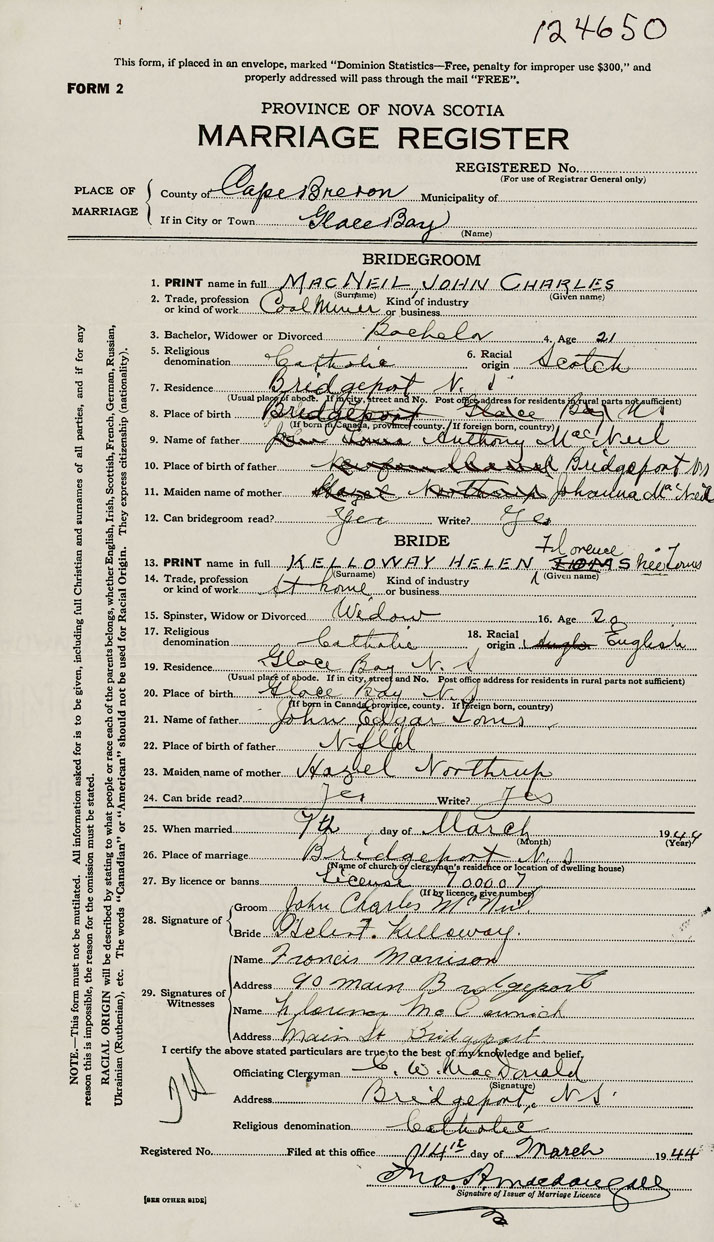 124650
This form, if placed in an envelope, marked "Dominion Statistics—Free, penalty for improper use $300," and
properly addressed will pass through the mail "FREE".
FORM 2
PROVINCE OF NOVA SCOTIA
MARRIAGE REGISTER
REGISTERED No.
(For use of Registrar General only)
PLACE OF MARRIAGE
County of Cape Breton Municipality of
If in City or Town Glace Bay
(Name)
BRIDEGROOM
1. PRINT name in full MACNEIL JOHN CHARLES
(Surname) (Given name)
2. Trade, profession or kind of work Coal Miner Kind of industry or business
3. Bachelor, Widower or Divorced Bachelor 4. Age 21
5. Religious denomination Catholic 6. Racial origin Scotch
7. Residence Bridgeport N.S
(Usual place of abode. If in city, street and No. Post office address for residents in rural parts not sufficient)
8. Place of birth Bridgeport Glace Bay NS
(If born in Canada, province, county. If foreign born, country)
9. Name of father Anthony MacNeil
10. Place of birth of father Bridgeport NS
11. Maiden name of mother Hazel Northrup Johanna MacNeil
12. Can bridegroom read? Yes Write? Yes
BRIDE
Florence
13. PRINT name in full KELLOWAY HELEN TOMS nee Toms
(Surname) (Given name)
14. Trade, profession or kind of work At home Kind of industry or business
15. Spinster, Widow or Divorced Widow 16. Age 20
17. Religious denomination Catholic 18. Racial origin Anglo English
19. Residence Glace Bay N.S
(Usual place of abode. If in city, street and No. Post office address for residents in rural parts not sufficient)
20. Place of birth Glace Bay N.S
(If born in Canada, province, county. If foreign born, country)
21. Name of father John Edgar Toms
22. Place of birth of father Nfld
23. Maiden name of mother Hazel Northrup
24. Can bride read? Yes Write? Yes
25. When married 7th day of March 1944
(Month) (Year)
26. Place of marriage Bridgeport N.S
(Name of church or clergyman's residence or location of dwelling house)
27. By licence or banns License 700007
(If by licence, give number)
28. Signature of
Groom John Charles McNeil
Bride Helen F. Kelloway.
29. Signatures of Witnesses
Name Francis Morrison
Address 90 Main Bridgeport
Name Florence McCormick
Address Main St Bridgeport
I certify the above stated particulars are true to the best of my knowledge and belief.
Officiating Clergyman C. W. MacDonald
(Signature)
Address Bridgeport, N.S.
Religious denomination Catholic
Registered No. Filed at this office 14th day of March 1944
Jno. A. Macdougall
Signature of Issuer of Marriage Licence
[SEE OTHER SIDE]
NOTE.—This form must not be mutilated. All information asked for is to be given, including full Christian and surnames of all parties, and if for any
reason this is impossible, the reason for the omission must be stated.
RACIAL ORIGIN will be described by stating to what people or race each of the parents belongs, whether English, Irish, Scottish, French, German, Russian,
Ukrainian (Ruthenian), etc. The words "Canadian" or "American" should not be used for Racial Origin. They express citizenship (nationality).